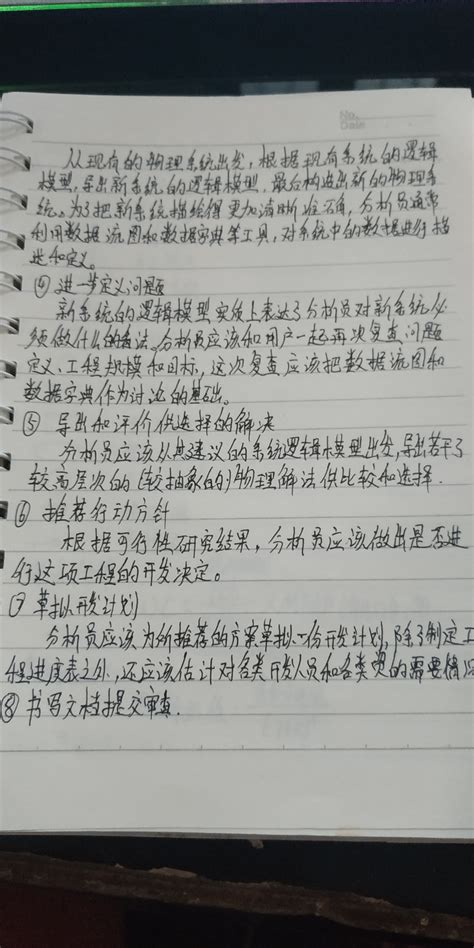 No.
Date
从现有的物理系统出发,根据现有系统的逻辑
模型,导出新系统的逻辑模型,最后构造出新的物理系
统。为了把新系统描绘得更加清晰准确,分析员通常
利用数据流图和数据字典等工具,对系统中的数据进行描
述和定义。
④ 进一步定义问题
新系统的逻辑模型实质上表达了分析员对新系统必
须做什么的看法。分析员应该和用户一起再次复查问题
定义、工程规模和目标,这次复查应该把数据流图和
数据字典作为讨论的基础。
⑤ 导出和评价供选择的解决
分析员应该从其建议的系统逻辑模型出发,导出若干个
较高层次的(较抽象的)物理解法供比较和选择.
⑥ 推荐行动方针
根据可行性研究结果,分析员应该做出是否进
行这项工程的开发决定。
⑦ 草拟开发计划
分析员应该为所推荐的方案草拟一份开发计划,除了制定工
程进度表之外,还应该估计对各类开发人员和各类的需要情况
⑧ 书写文档提交审查.